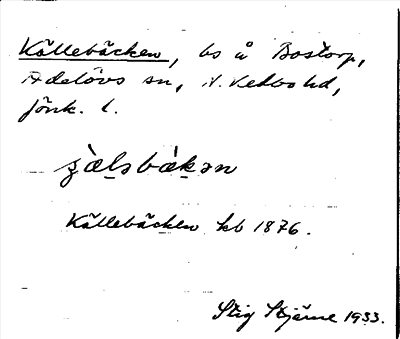 Källebäcken, bs å Bostorp,
Adelövs sn, N. Vedbo hd,
Jönk. l.
Källebäcken kb 1876.
Stig Stjärne 1933.